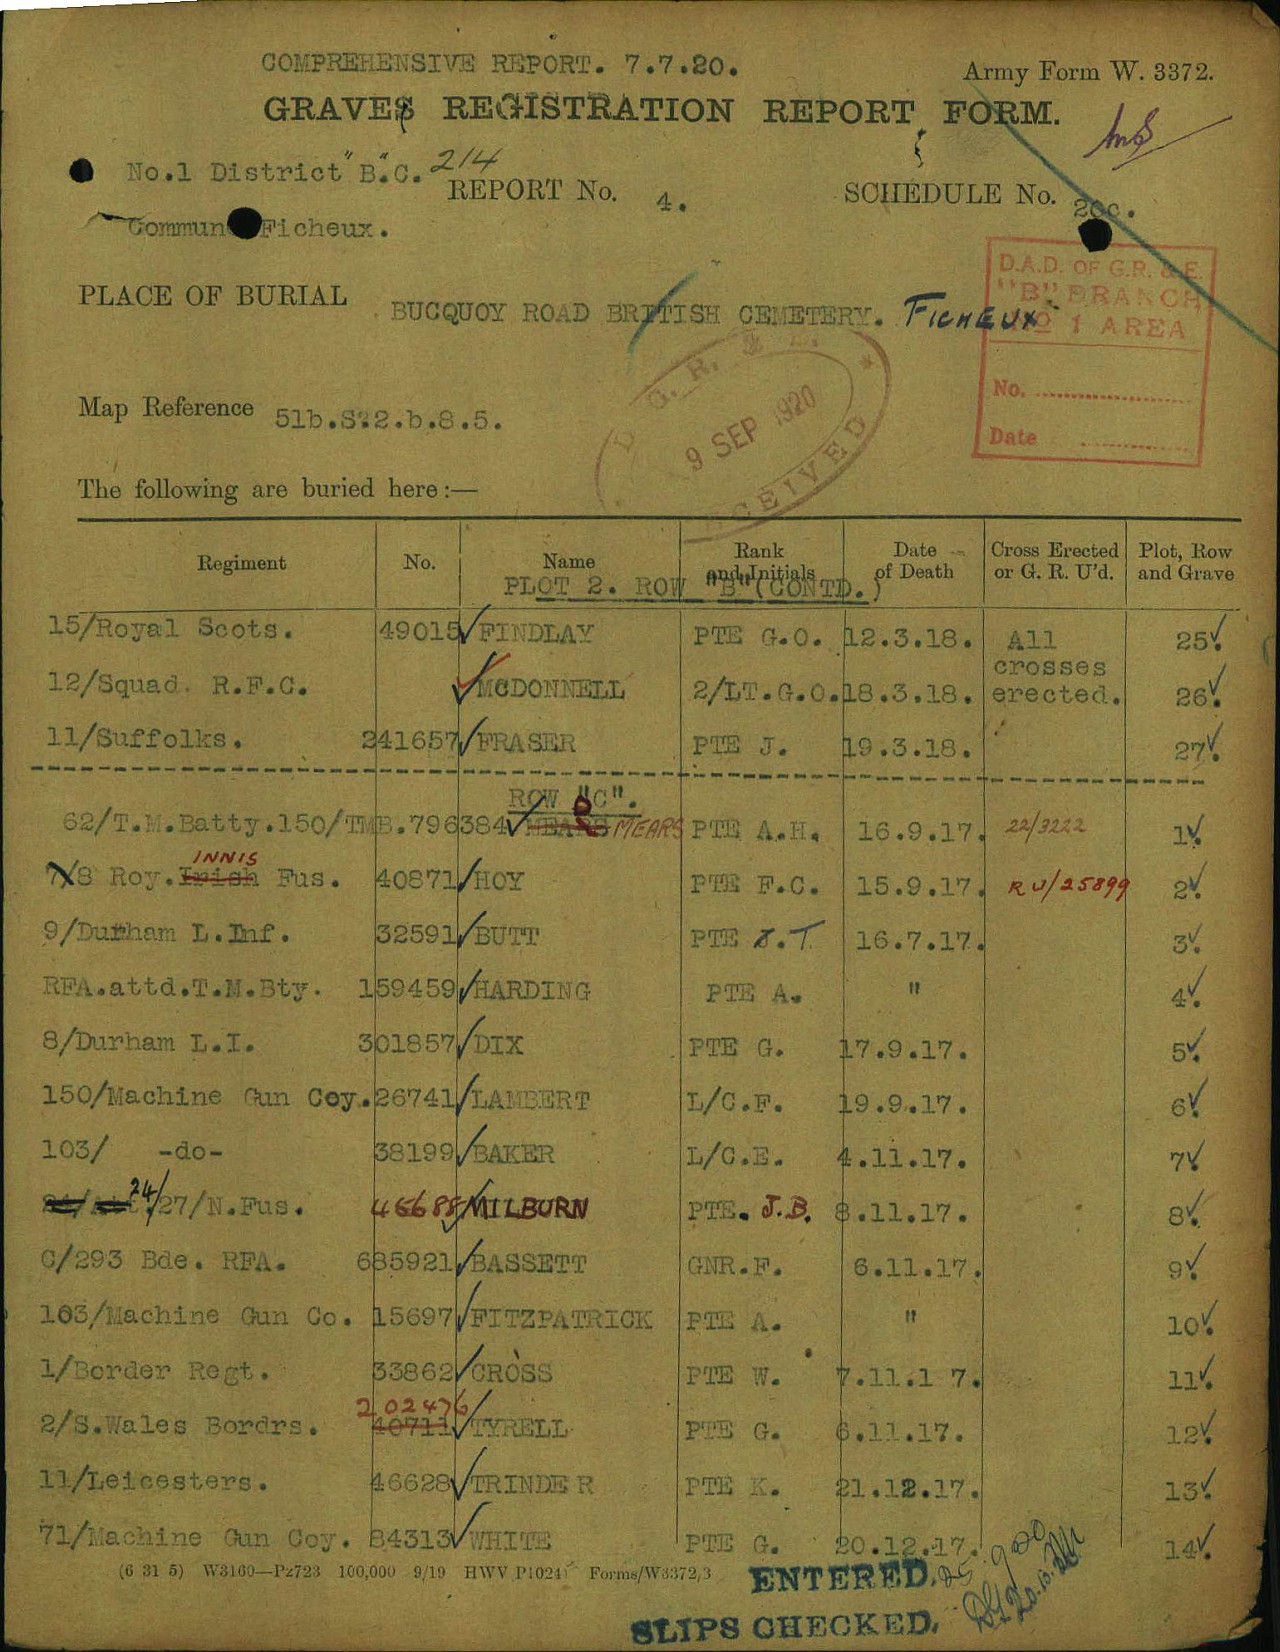 COMPREHENSIVE REPORT. 7.7.20.
Army Form W. 3372.
GRAVES REGISTRATION REPORT FORM.
No.1 District "B".C. 214
REPORT No. 4.
SCHEDULE No. 20c.
Commune Ficheux.
D.A.D. OF G.R. & E.
"B" BRANCH
No 1 AREA
No.
Date
PLACE OF BURIAL BUCQUOY ROAD BRITISH CEMETERY. FICHEUX
9 SEP 1920
RECEIVED
Map Reference 51b.S.2.b.8.5.
The following are buried here:—
Regiment No. Name Rank and Initials Date of Death Cross Erected or G. R. U'd. Plot, Row and Grave
PLOT 2. ROW "B"(CONTD.)
15/Royal Scots. 49015 FINDLAY PTE G.O. 12.3.18. All 25.
crosses
12/Squad. R.F.C. MCDONNELL 2/LT.G.O. 18.3.18. erected. 26.
11/Suffolks. 241657 FRASER PTE J. 19.3.18. 27.
ROW "C".
62/T.M.Batty.150/TMB. 796384 MEARS MEARS PTE A.H. 16.9.17. 22/3222 1.
INNIS
7/8 Roy.Irish Fus. 40871 HOY PTE F.C. 15.9.17. RU/25899 2.
9/Durham L.Inf. 32591 BUTT PTE J.T. 16.7.17. 3.
RFA.attd.T.M.Bty. 159459 HARDING PTE A. " 4.
8/Durham L.I. 301857 DIX PTE G. 17.9.17. 5.
150/Machine Gun Coy. 26741 LAMBERT L/C.F. 19.9.17. 6.
103/ -do- 38199 BAKER L/C.E. 4.11.17. 7.
24/27/N.Fus. 46688 MILBURN PTE. J.B. 8.11.17. 8.
C/293 Bde. RFA. 685921 BASSETT GNR.F. 6.11.17. 9.
103/Machine Gun Co. 15697 FITZPATRICK PTE A. " 10.
1/Border Regt. 33862 CROSS PTE W. 7.11.1 7. 11.
202476
2/S.Wales Bordrs. 40711 TYRELL PTE G. 6.11.17. 12.
11/Leicesters. 46628 TRINDER PTE K. 21.12.17. 13.
71/Machine Gun Coy. 84313 WHITE PTE G. 20.12.17. 14.
(6 31 5) W3160—P2723 100,000 9/19 HWV P1024 Forms/W3372/3
ENTERED.
SLIPS CHECKED.